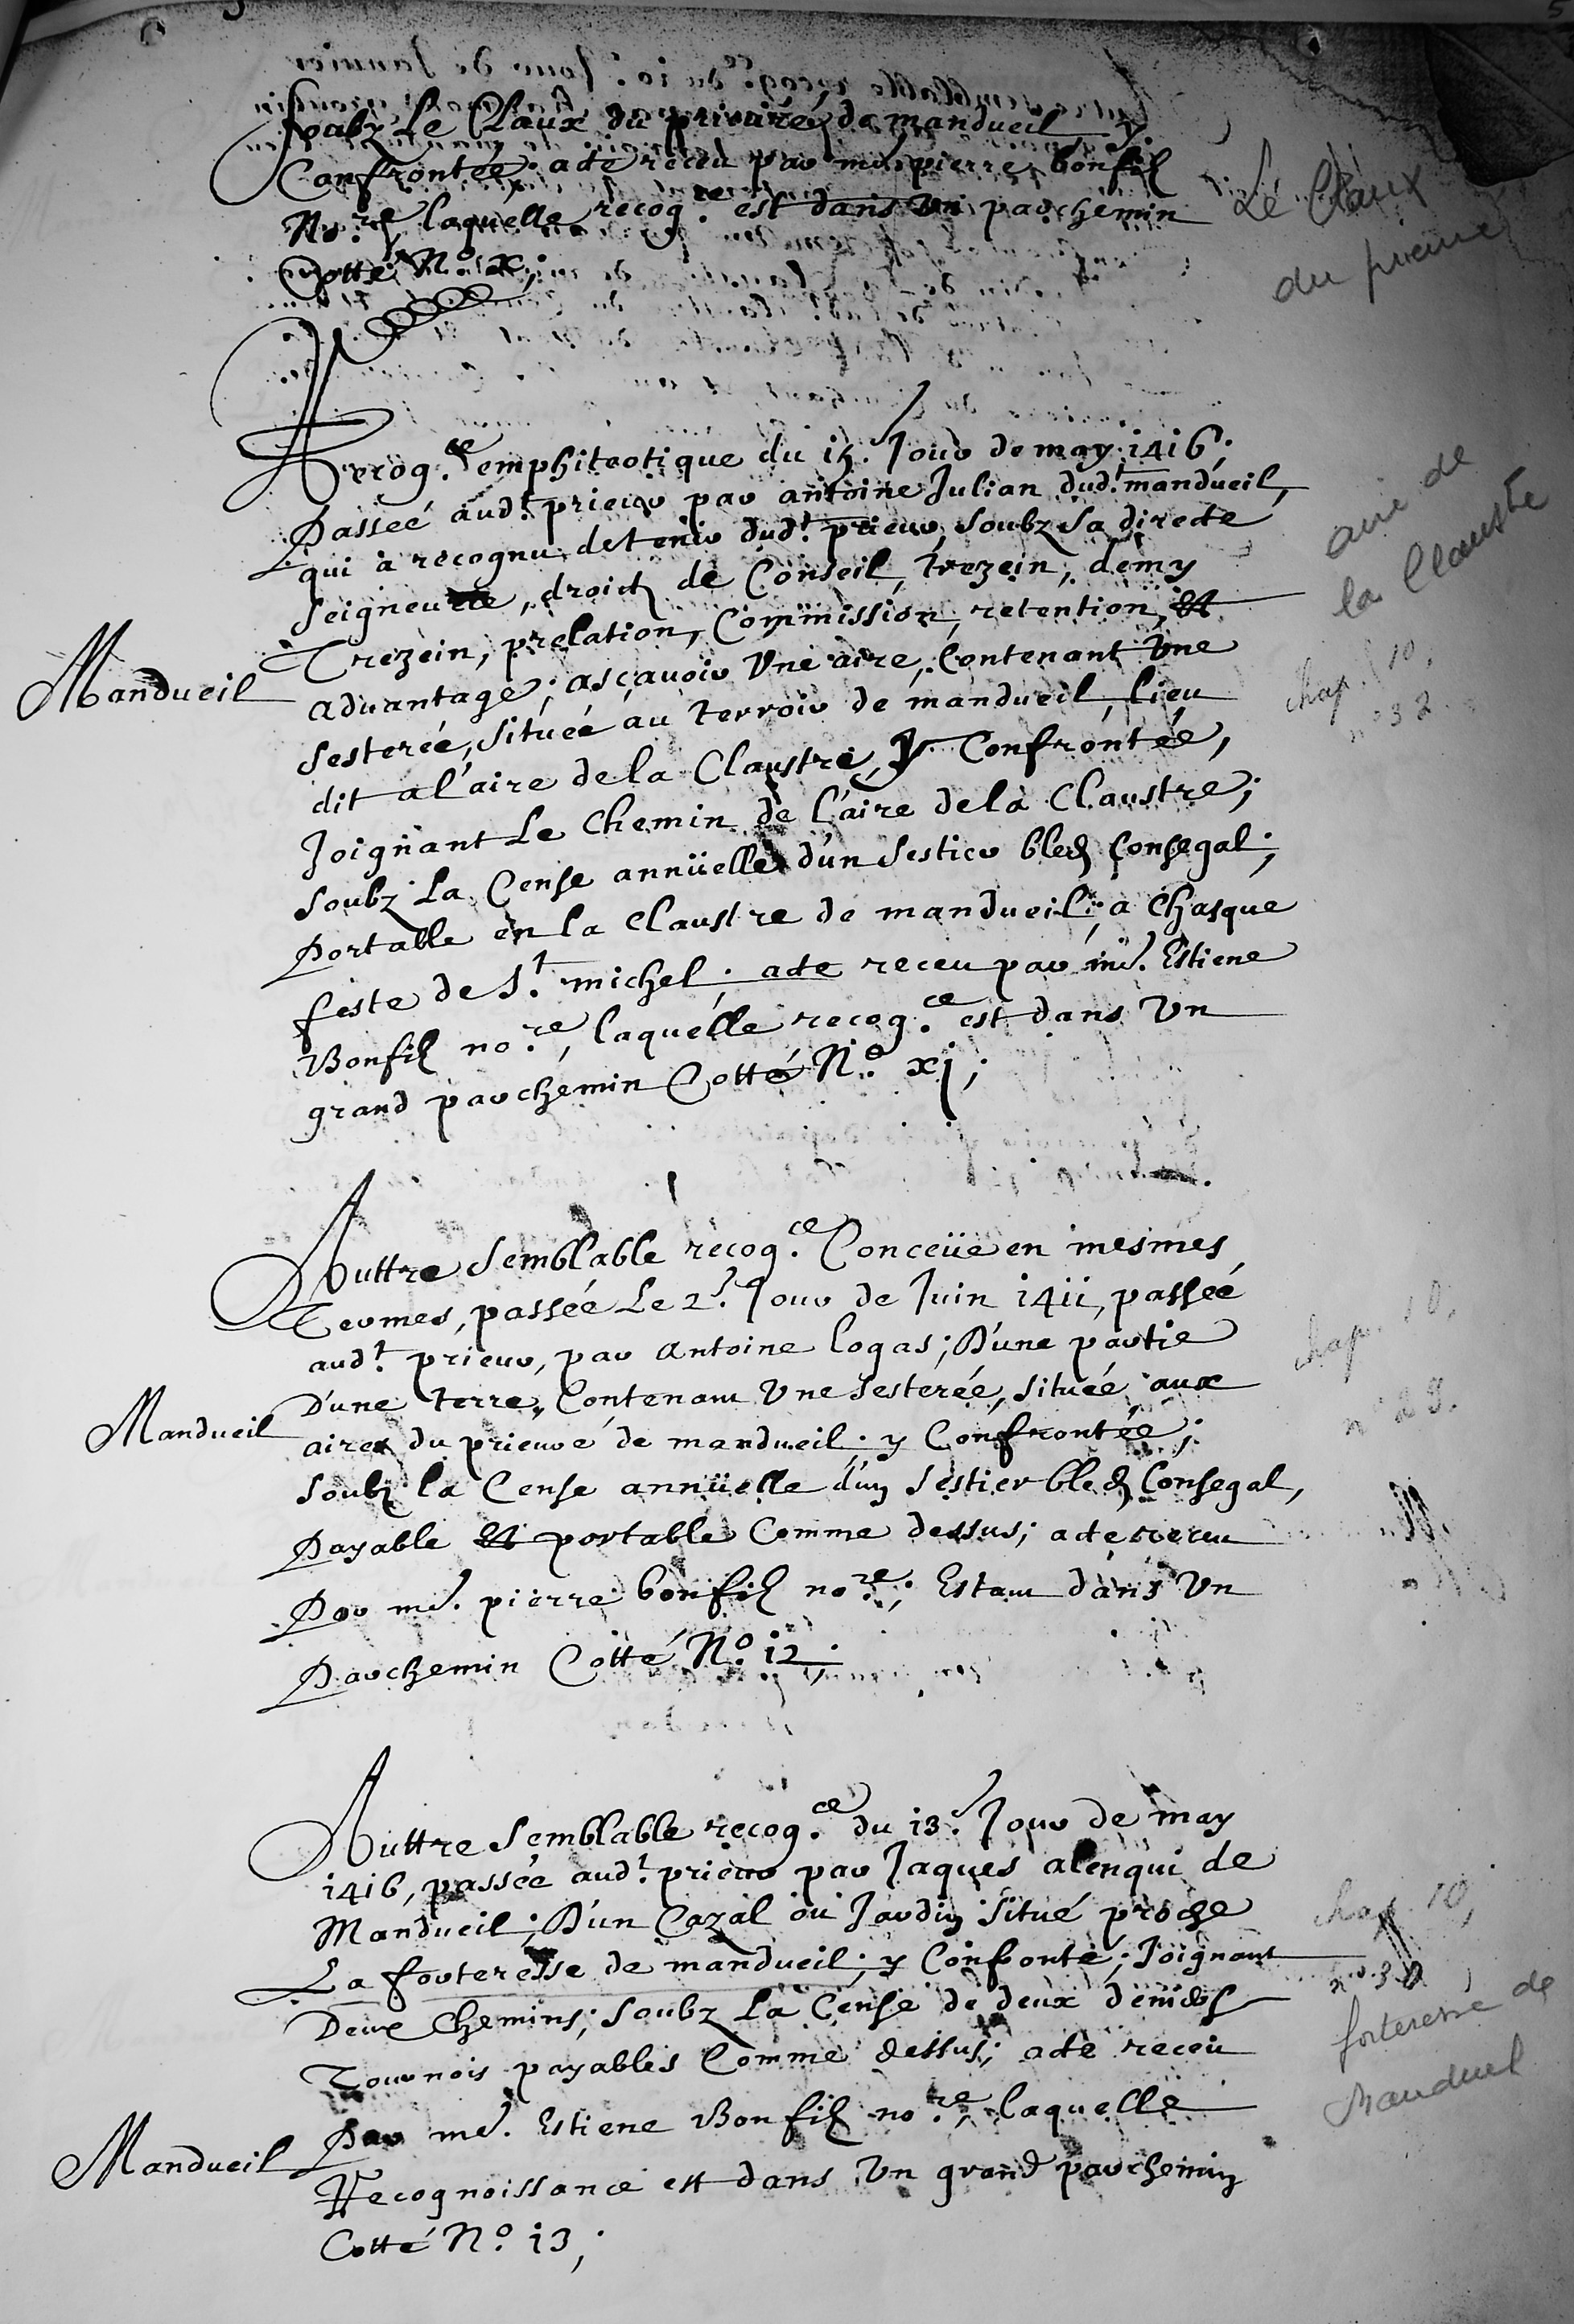 soubz Le Claux du prieuré de mandueil y
Confrontée; acte receu par me. pierre bonfil
No.re laquelle recog.ce est dans Un parchemin
Cotté N.o x;
Le Claux
du prieuré
Recog.ce emphiteotique du 15.e Jour de may 1416;
Passeé aud.t prieur par antoine Julian dud.t mandueil,
qui à recognu detenir dud.t prieur, soubz sa directe
seigneurie, droict de Conseil, trezein, demy
Trezein, prelation, Commission, retention, et
advantage; ascavoir Une aire, Contenant Une
Mandueil
sesterée, situéé au terroir de mandueil, lieu
dit a l'aire de la Claustre, y Confrontée,
Joignant Le Chemin de l'aire de la Claustre;
soubz La Cense annüelle d'un sestier bled Consegal;
Portable en la Claustre de mandueil; a Chasque
feste de S.t michel; acte receu par me. Estiene
Bonfil no.re, laquelle recog.ce est dans Un
grand parchemin Cotté N.o xj;
aire de
la Claustre
chap. 10,
n° 32.
Auttre semblable recog.ce Conceüe en mesmes
Termes, passée Le 2.e Jour de Juin 1411, passeé
aud.t prieur, par Antoine logas; D'une partie
D'une terre, Contenant Une sesterée, située, aux
Mandueil
aires du prieuré de mandueil; y Confrontée;
soubz la Cense annüelle d'un sestier bled Consegal,
Payable et portable Comme dessus; acte receu
Par me. pierre bonfil no.re; Estant dans Un
Parchemin Cotté N.o 12;
chap. 10,
n° 29.
Auttre semblable recog.ce du 13.e Jour de may
1416, passée aud.t prieur par Jaques alenqui de
Mandueil; D'un Cazal ou Jardin situé proche
La forteresse de mandueil; y Confronté; Joignant
Deux Chemins; soubz La Cense de deux deniers
Tournois payables Comme dessus; acte receu
Par me. Estiene Bonfil no.re, laquelle
Mandueil
Recognoissance est dans Un grand parchemin
Cotté N.o 13;
chap. 10,
n° 30
forteresse de
Manduel